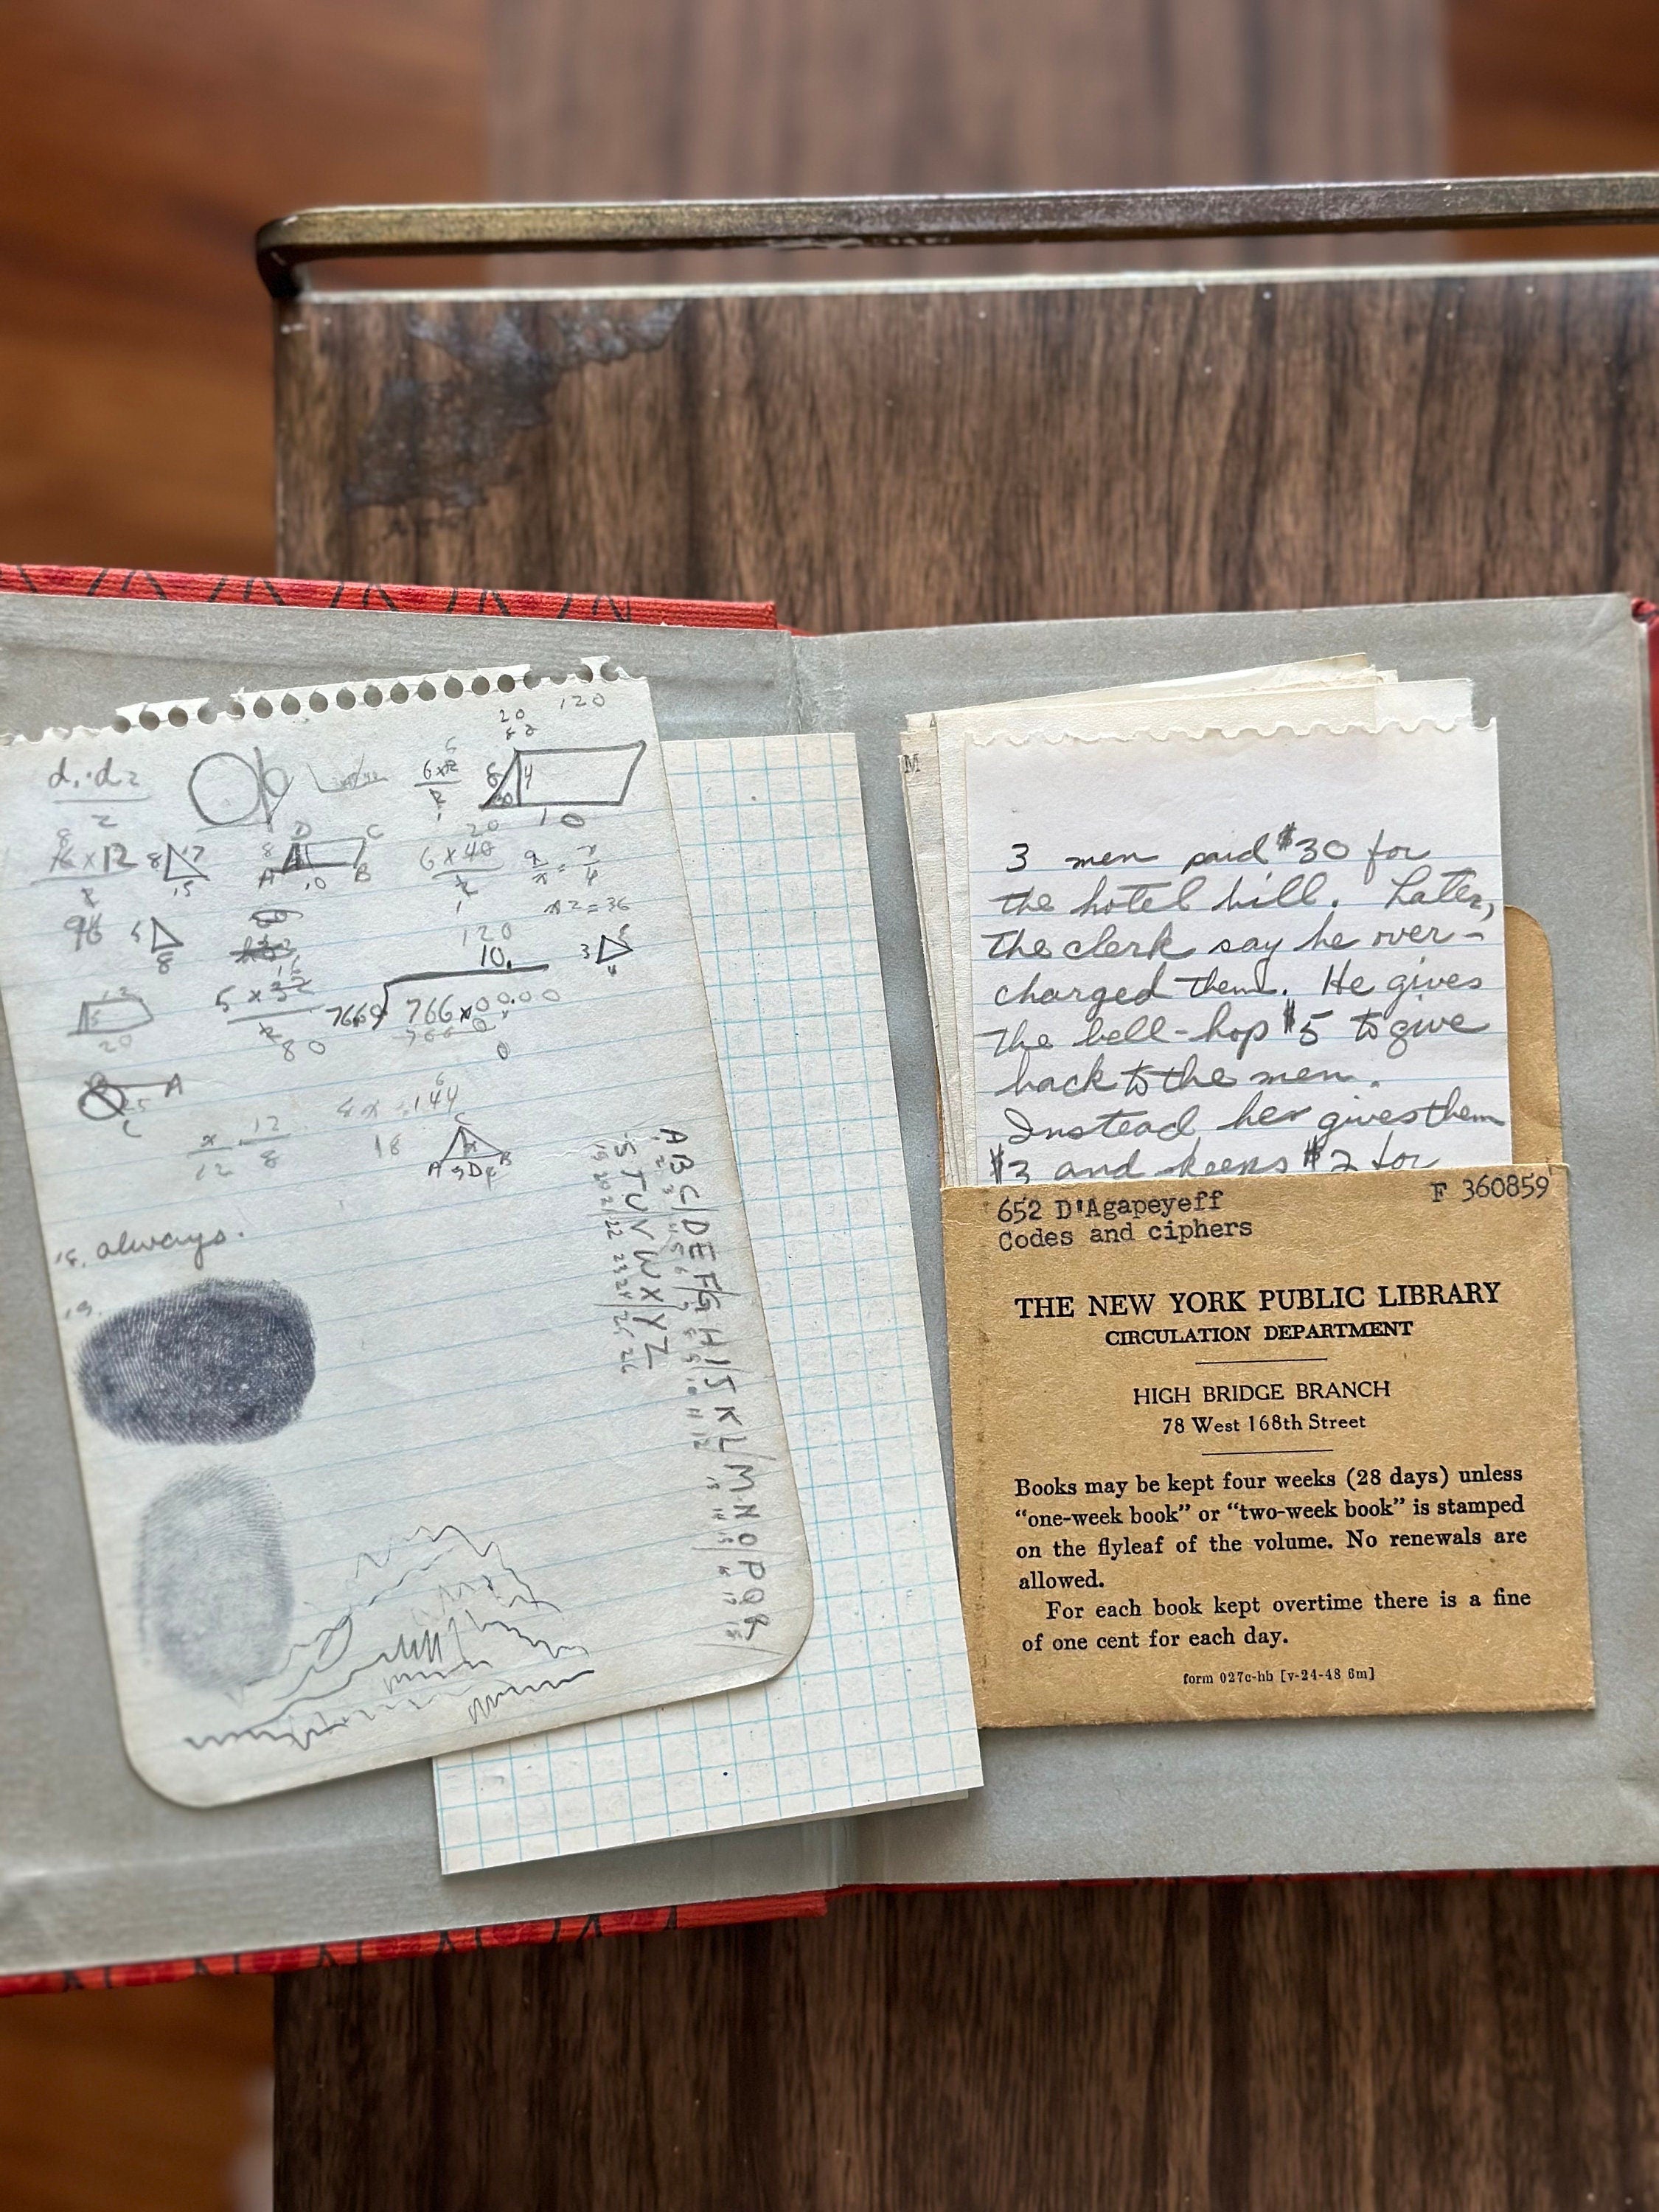 120
20
d1·d2
2
6x12
2
6
4
10
16x12
2
8
17
15
D
C
A
10
B
20
6x40
2
1
x2=36
96
5
8
120
10.
3
5
4
5x32
2
80
7669
20
A
C
x
12
12
8
8x=144
18
C
A
D
18. always.
19.
A B C D E F G H I J K L M N O P Q R
S T U V W X Y Z
19 20 21 22 23 24 25 26
M
3 men paid $30 for
the hotel bill. Later,
the clerk say he over-
charged them. He gives
the bell-hop $5 to give
back to the men.
Instead, her gives them
$3 and keeps $2 for
652 D'Agapeyeff
F 360859
Codes and ciphers
THE NEW YORK PUBLIC LIBRARY
CIRCULATION DEPARTMENT
HIGH BRIDGE BRANCH
78 West 168th Street
Books may be kept four weeks (28 days) unless
"one-week book" or "two-week book" is stamped
on the flyleaf of the volume. No renewals are
allowed.
For each book kept overtime there is a fine
of one cent for each day.
form 027c-hb [v-24-48 6m]